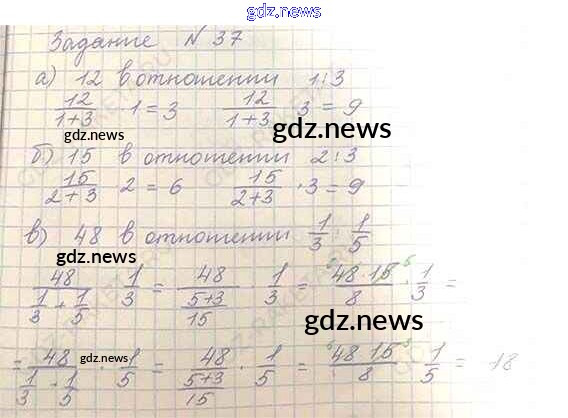 gdz.news
Задание N 37
gdz.news
а) 12 в отношении 1:3
12/(1+3) 1 = 3 12/(1+3) 3 = 9
gdz.news
б) 15 в отношении 2:3
15/(2+3) 2 = 6 15/(2+3) · 3 = 9
в) 48 в отношении 1/3 : 1/5
gdz.news
48/(1/3 + 1/5) · 1/3 = 48/((5+3)/15) · 1/3 = (48·15)/8 · 1/3 =
gdz.news
= 48/(1/3 + 1/5) · 1/5 = 48/((5+3)/15) · 1/5 = (48·15)/8 · 1/5 = 18
gdz.news